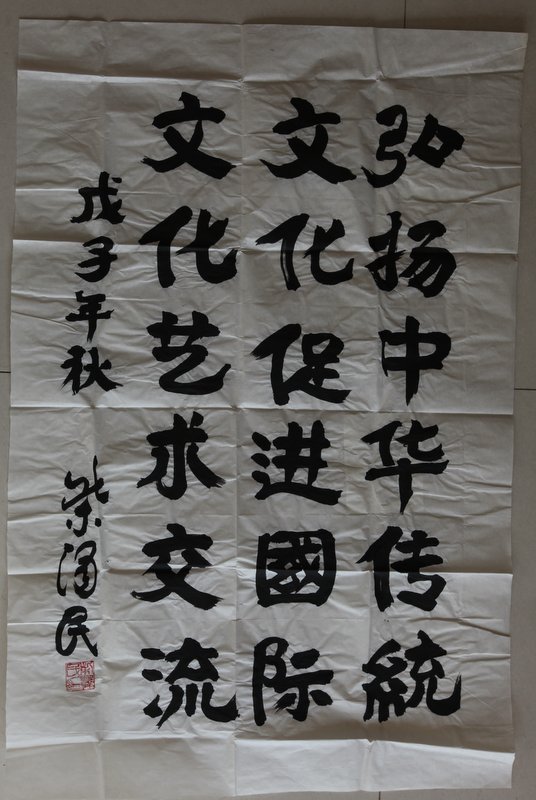 弘扬中华传統
文化促进國际
文化艺求交流
戊子年秋
柴泽民